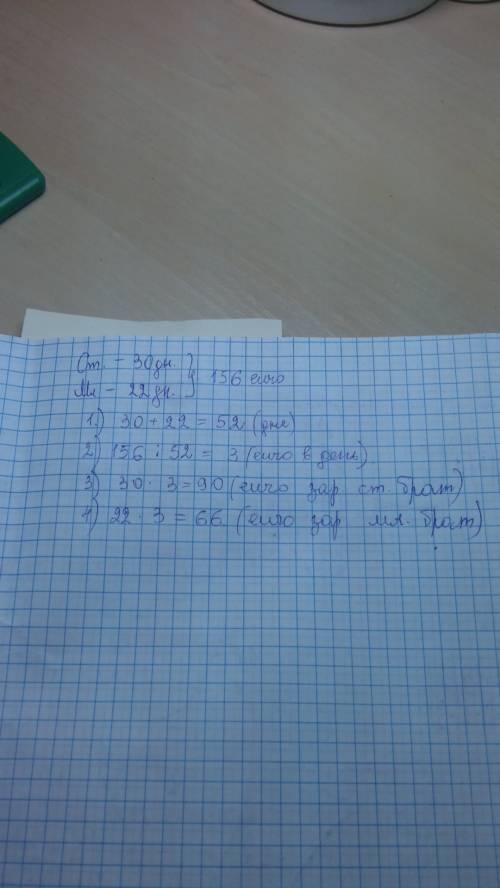 Ст. - 30 дн. }
Мл - 22 дн. } 156 евро
1) 30 + 22 = 52 (дня)
2) 156 : 52 = 3 (евро в день)
3) 30 · 3 = 90 (евро зар ст. брат)
4) 22 · 3 = 66 (евро зар мл. брат)